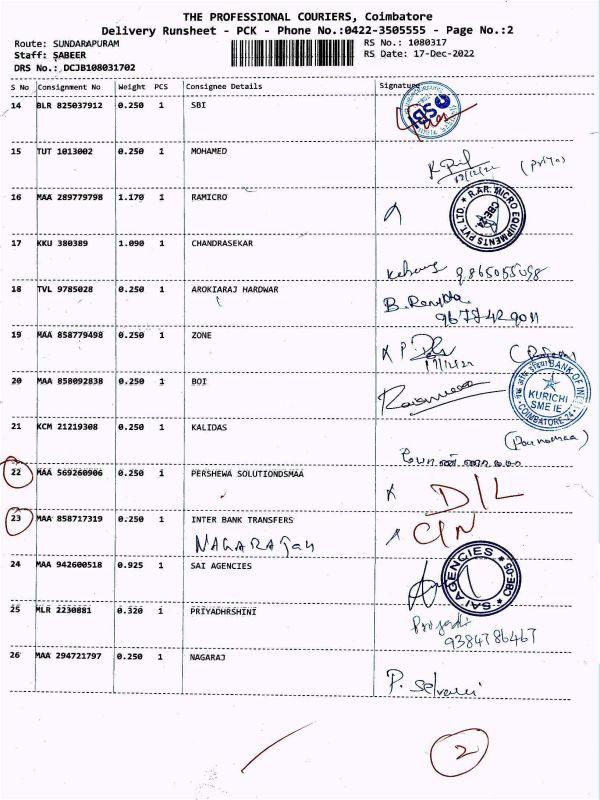 THE PROFESSIONAL COURIERS, Coimbatore
Delivery Runsheet - PCK - Phone No.:0422-3505555 - Page No.:2
Route: SUNDARAPURAM RS No.: 1080317
Staff: SABEER RS Date: 17-Dec-2022
DRS No.: DCJB108031702
S No Consignment No Weight PCS Consignee Details Signature
14 BLR 825037912 0.250 1 SBI
SBI
15 TUT 1013002 0.250 1 MOHAMED
17/12/22 (Priya)
16 MAA 289779798 1.170 1 RAMICRO
R.AR. MICRO EQUIPMENTS PVT. LTD. CBE-24
17 KKU 380389 1.090 1 CHANDRASEKAR
9865055098
18 TVL 9785028 0.250 1 AROKIARAJ HARDWAR
19 MAA 858779498 0.250 1 ZONE
17/12/22
20 MAA 858092838 0.250 1 BOI
BANK OF INDIA KURICHI SME IE COIMBATORE-24
21 KCM 21219308 0.250 1 KALIDAS
22 MAA 569260906 0.250 1 PERSHEWA SOLUTIONDSMAA
D/L
23 MAA 858717319 0.250 1 INTER BANK TRANSFERS
C/N
NAGARAJAN
24 MAA 942600518 0.925 1 SAI AGENCIES
SAI AGENCIES CBE-05
25 MLR 2230881 0.320 1 PRIYADHRSHINI
9384786467
26 MAA 294721797 0.250 1 NAGARAJ
P. Selvani
2